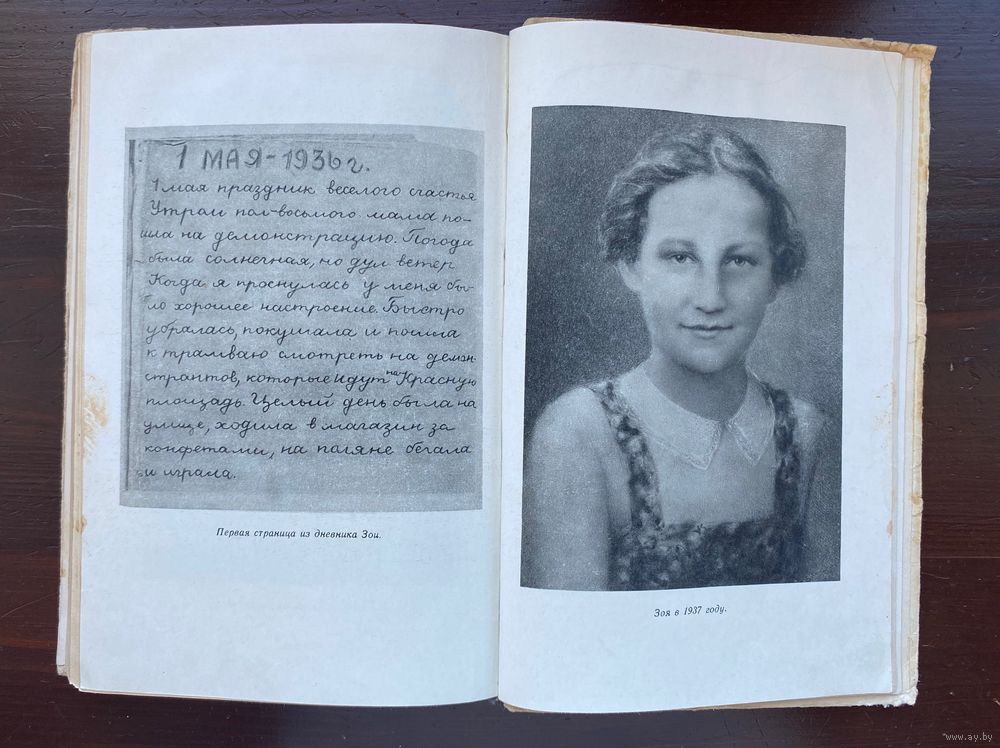 1 МАЯ-1936 г.
1 мая праздник веселого счастья
Утром пол-восьмого мама по-
шла на демонстрацию. Погода
была солнечная, но дул ветер
Когда я проснулась у меня бы-
ло хорошее настроение. Быстро
убралась, покушала и пошла
к трамваю смотреть на демон-
странтов, которые идут на Красную
площадь. Целый день была на
улице, ходила в магазин за
конфетами, на паляне бегала
и играла.
Первая страница из дневника Зои.
Зоя в 1937 году.
www.ay.by